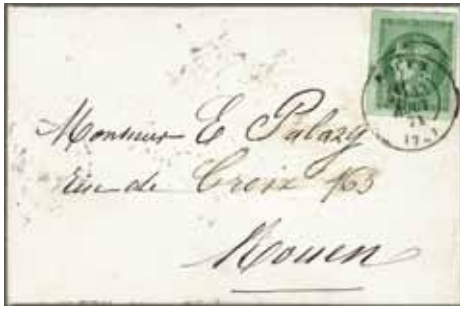 Monsieur E Palazy
rue de Croix 163
Rouen
71